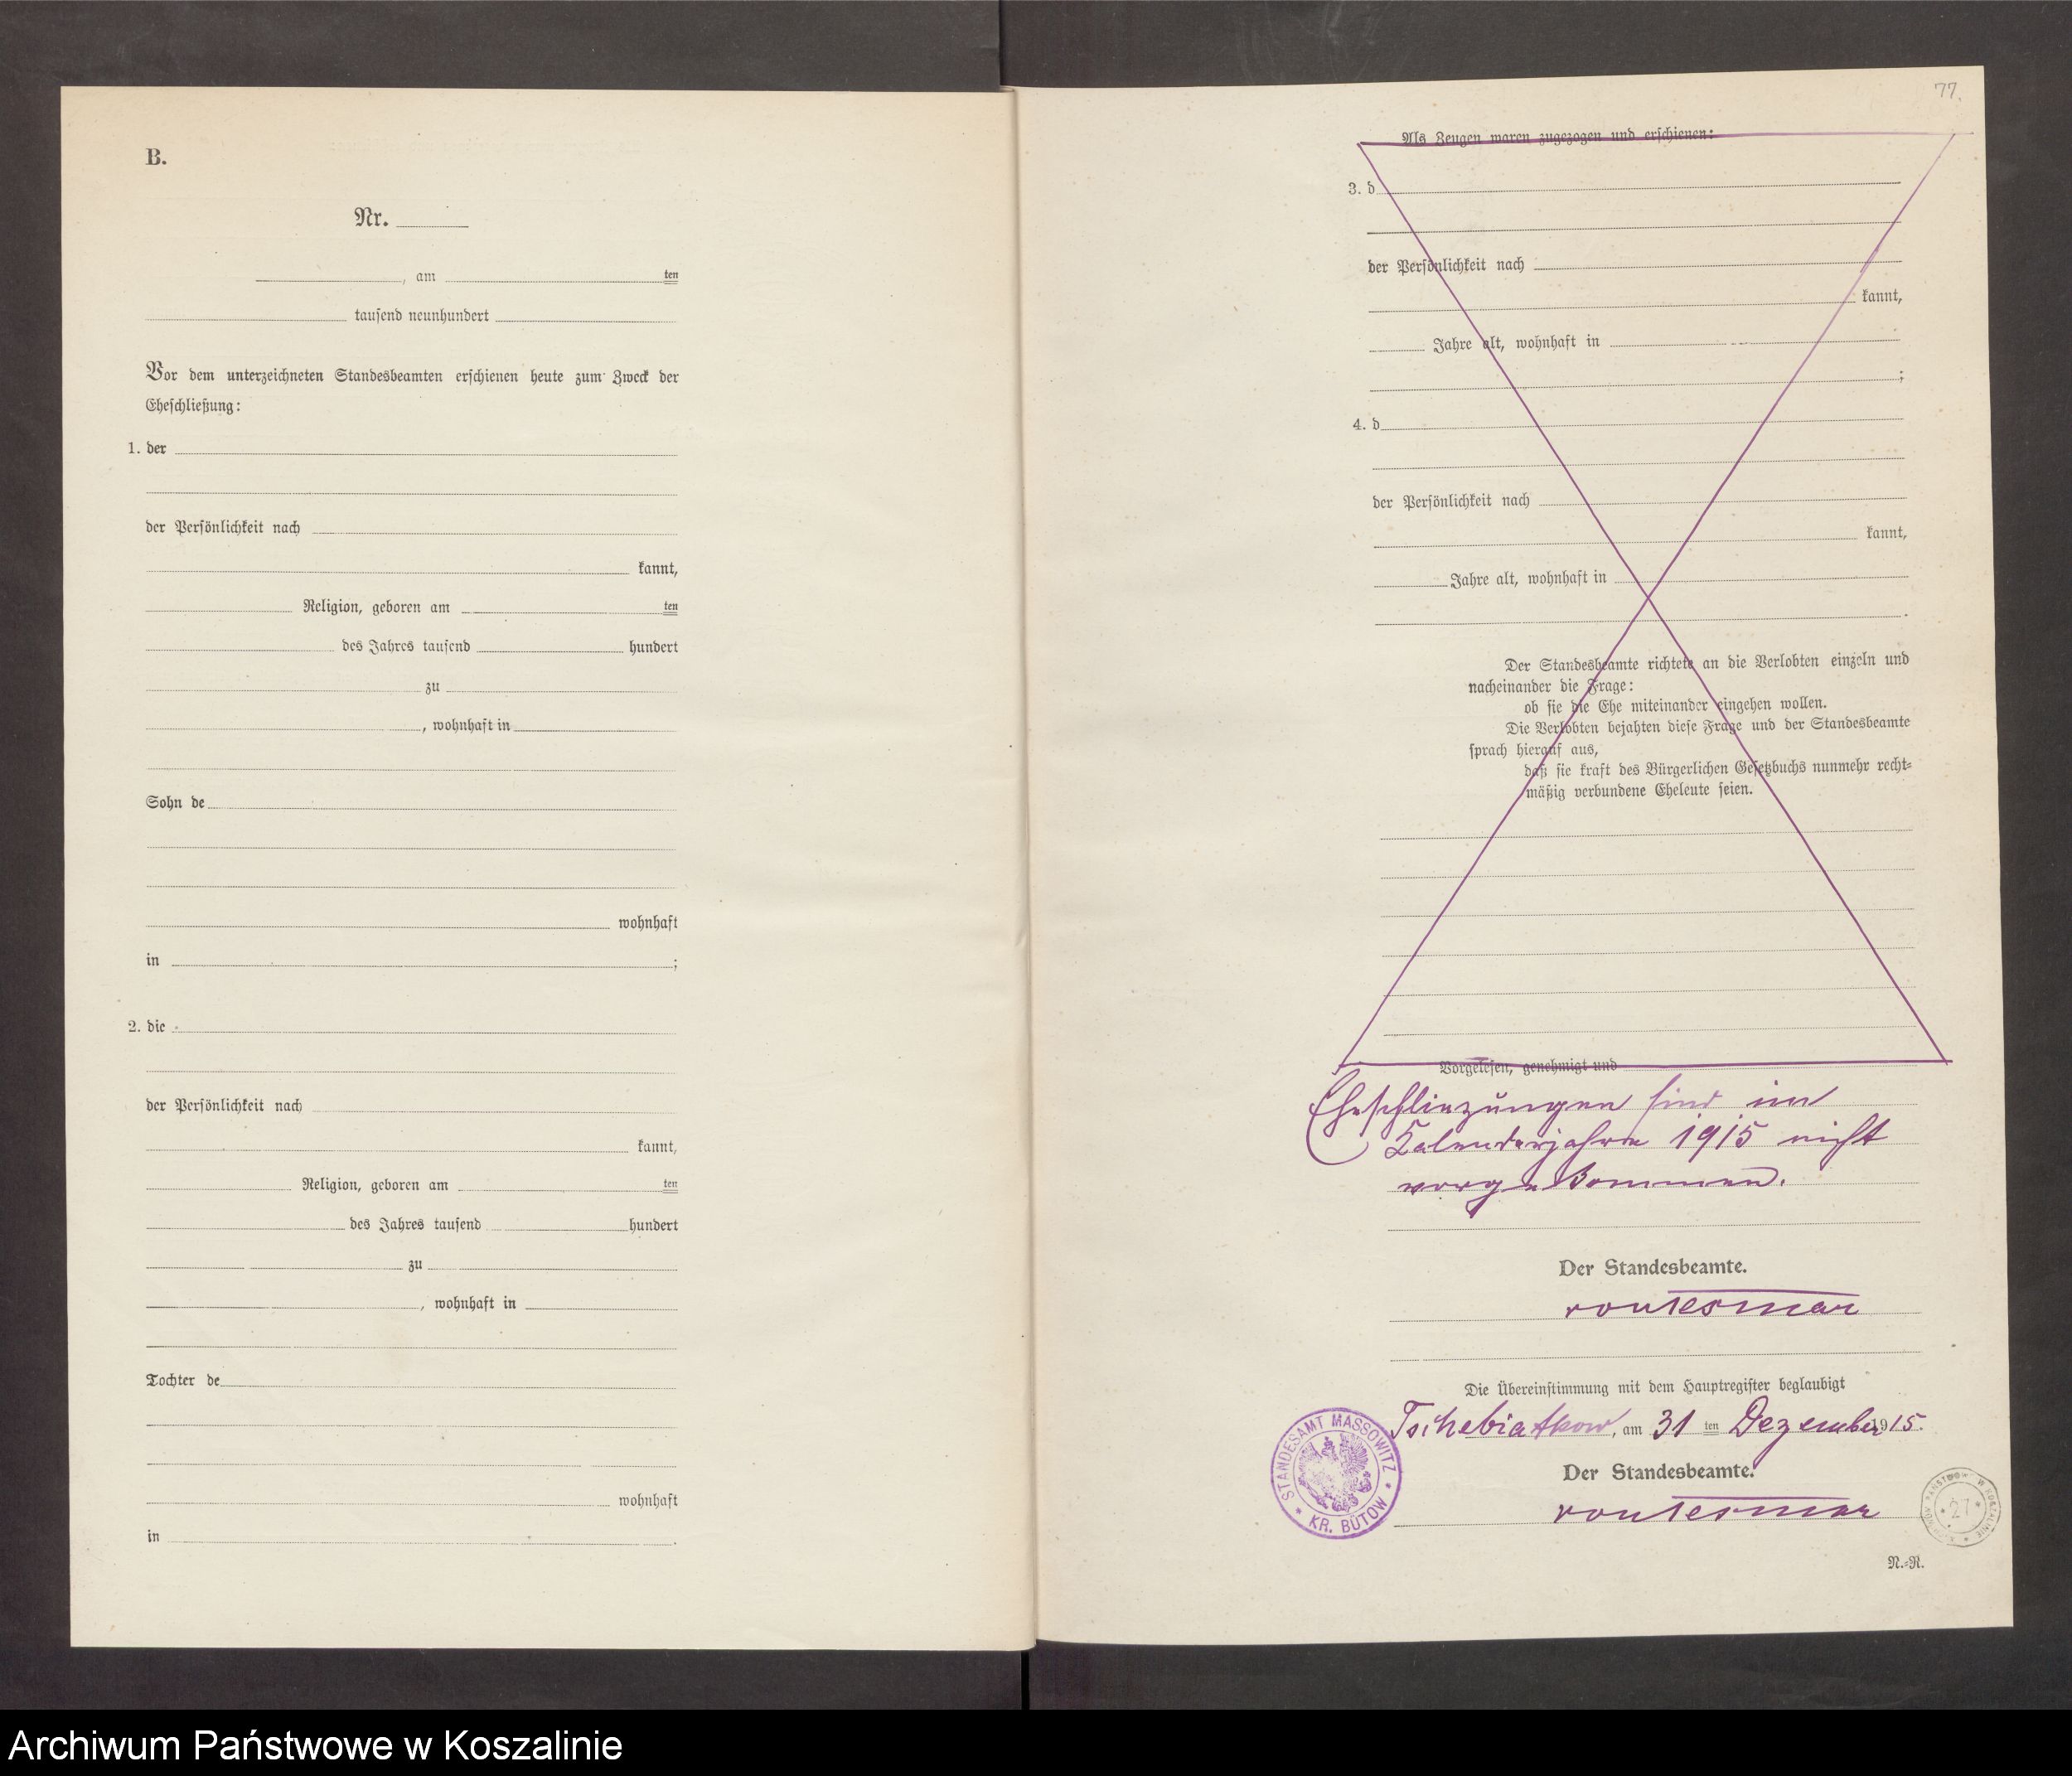 B.
Nr.
, am ten
tausend neunhundert
Vor dem unterzeichneten Standesbeamten erschienen heute zum Zweck der
Eheschließung:
1. der
der Persönlichkeit nach
kannt,
Religion, geboren am ten
des Jahres tausend hundert
zu
, wohnhaft in
Sohn de
wohnhaft
in ;
2. die
der Persönlichkeit nach
kannt,
Religion, geboren am ten
des Jahres tausend hundert
zu
, wohnhaft in
Tochter de
wohnhaft
in .
77.
Als Zeugen waren zugezogen und erschienen:
3. d
der Persönlichkeit nach
kannt,
Jahre alt, wohnhaft in
;
4. d
der Persönlichkeit nach
kannt,
Jahre alt, wohnhaft in
.
Der Standesbeamte richtete an die Verlobten einzeln und
nacheinander die Frage:
ob sie die Ehe miteinander eingehen wollen.
Die Verlobten bejahten diese Frage und der Standesbeamte
sprach hierauf aus,
daß sie kraft des Bürgerlichen Gesetzbuchs nunmehr recht-
mäßig verbundene Eheleute seien.
Vorgelesen, genehmigt und
Eheschließungen sind im
Kalenderjahre 1915 nicht
vorgekommen.
Der Standesbeamte.
Die Übereinstimmung mit dem Hauptregister beglaubigt
Tschebiatkow, am 31 ten Dezember 1915.
Der Standesbeamte.
STANDESAMT MASSOWITZ
* KR. BÜTOW *
27
N.-R.
Archiwum Państwowe w Koszalinie